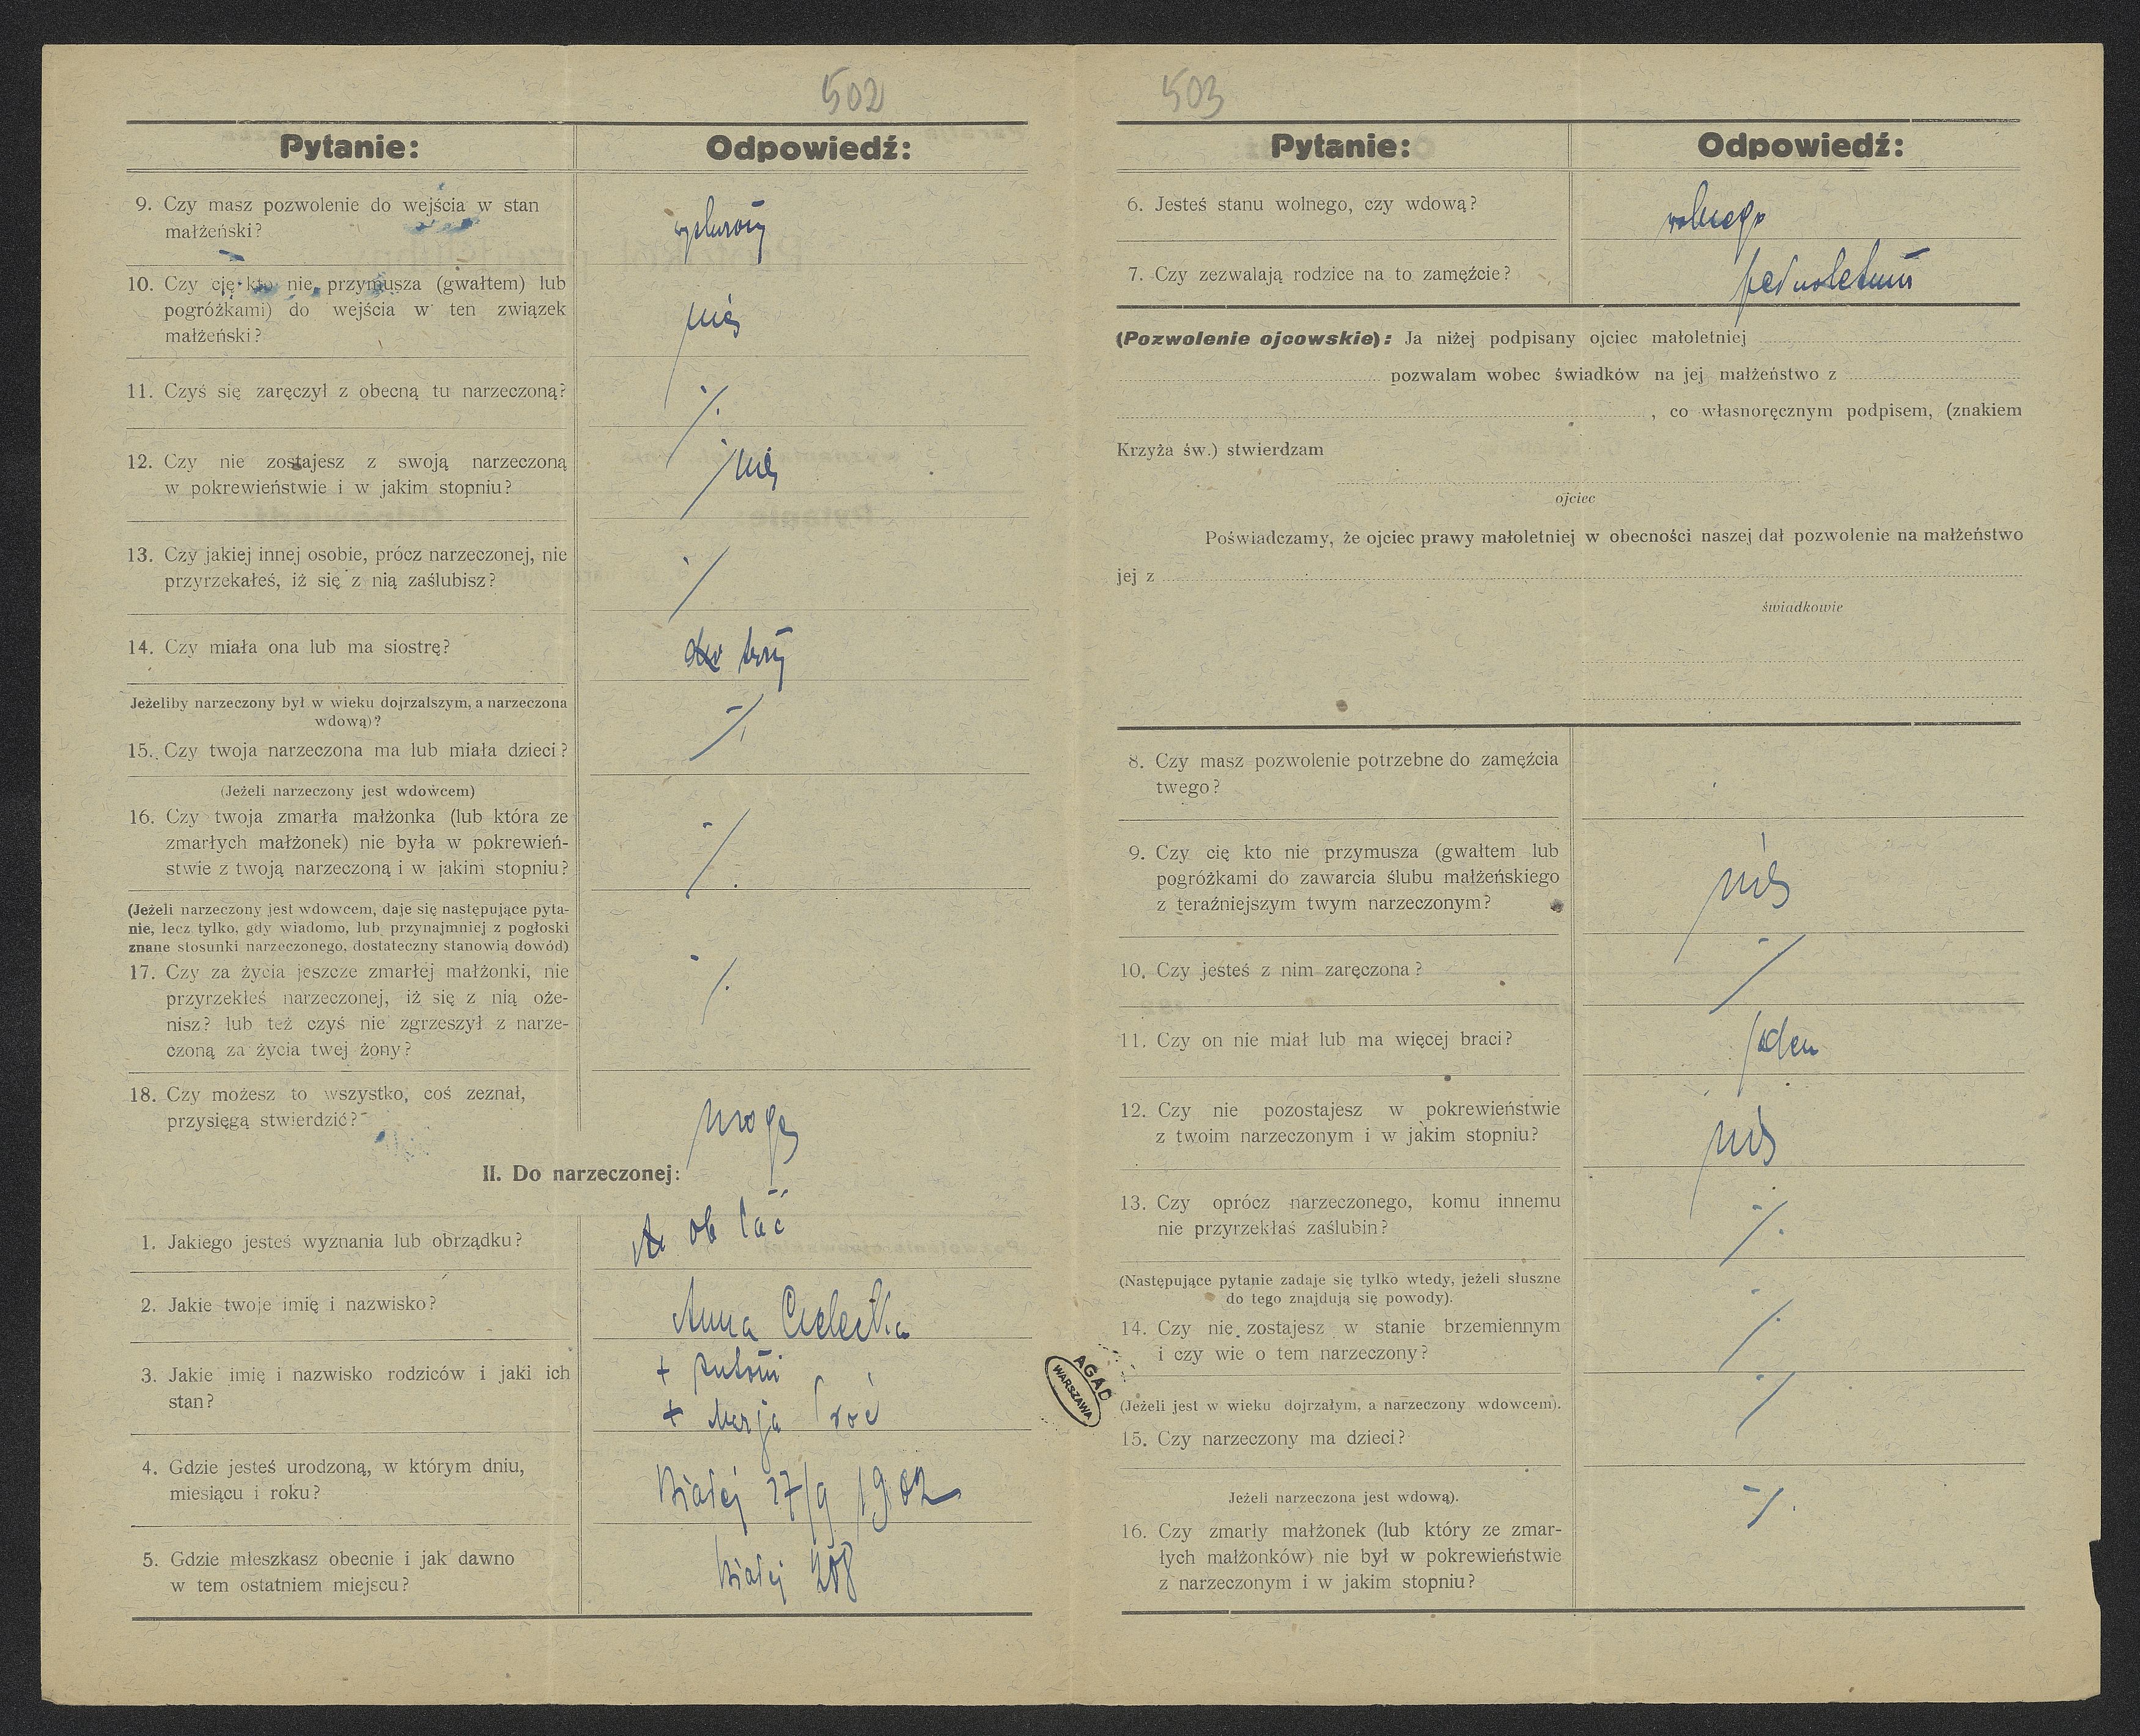 502
Pytanie:
Odpowiedź:
9. Czy masz pozwolenie do wejścia w stan
małżeński?
10. Czy cię kto nie przymusza (gwałtem) lub
pogróżkami) do wejścia w ten związek
małżeński?
nie
11. Czyś się zaręczył z obecną tu narzeczoną?
12. Czy nie zostajesz z swoją narzeczoną
w pokrewieństwie i w jakim stopniu?
nie
13. Czy jakiej innej osobie, prócz narzeczonej, nie
przyrzekałeś, iż się z nią zaślubisz?
14. Czy miała ona lub ma siostrę?
Jeżeliby narzeczony był w wieku dojrzalszym, a narzeczona
wdową)?
15. Czy twoja narzeczona ma lub miała dzieci?
(Jeżeli narzeczony jest wdowcem)
16. Czy twoja zmarła małżonka (lub która ze
zmarłych małżonek) nie była w pokrewień-
stwie z twoją narzeczoną i w jakim stopniu?
(Jeżeli narzeczony jest wdowcem, daje się następujące pyta-
nie, lecz tylko, gdy wiadomo, lub przynajmniej z pogłoski
znane stosunki narzeczonego, dostateczny stanowią dowód)
17. Czy za życia jeszcze zmarłej małżonki, nie
przyrzekłeś narzeczonej, iż się z nią oże-
nisz? lub też czyś nie zgrzeszył z narze-
czoną za życia twej żony?
18. Czy możesz to wszystko, coś zeznał,
przysięgą stwierdzić?
mogę
II. Do narzeczonej:
1. Jakiego jesteś wyznania lub obrządku?
ob łać
2. Jakie twoje imię i nazwisko?
Anna Cielecka
3. Jakie imię i nazwisko rodziców i jaki ich
stan?
+ Antoni
+ Marja
4. Gdzie jesteś urodzoną, w którym dniu,
miesiącu i roku?
Białej 27/9 1902
5. Gdzie mieszkasz obecnie i jak dawno
w tem ostatniem miejscu?
Białej 208
503
Pytanie:
Odpowiedź:
6. Jesteś stanu wolnego, czy wdową?
wolnego
7. Czy zezwalają rodzice na to zamęźcie?
pełnoletnia
(Pozwolenie ojcowskie): Ja niżej podpisany ojciec małoletniej
pozwalam wobec świadków na jej małżeństwo z
, co własnoręcznym podpisem, (znakiem
Krzyża św.) stwierdzam
ojciec
Poświadczamy, że ojciec prawy małoletniej w obecności naszej dał pozwolenie na małżeństwo
jej z
świadkowie
8. Czy masz pozwolenie potrzebne do zamęźcia
twego?
9. Czy cię kto nie przymusza (gwałtem lub
pogróżkami do zawarcia ślubu małżeńskiego
z teraźniejszym twym narzeczonym?
nie
10. Czy jesteś z nim zaręczona?
11. Czy on nie miał lub ma więcej braci?
jeden
12. Czy nie pozostajesz w pokrewieństwie
z twoim narzeczonym i w jakim stopniu?
nie
13. Czy oprócz narzeczonego, komu innemu
nie przyrzekłaś zaślubin?
(Następujące pytanie zadaje się tylko wtedy, jeżeli słuszne
do tego znajdują się powody).
14. Czy nie zostajesz w stanie brzemiennym
i czy wie o tem narzeczony?
AGAD
WARSZAWA
(Jeżeli jest w wieku dojrzałym, a narzeczony wdowcem).
15. Czy narzeczony ma dzieci?
Jeżeli narzeczona jest wdową).
16. Czy zmarły małżonek (lub który ze zmar-
łych małżonków) nie był w pokrewieństwie
z narzeczonym i w jakim stopniu?